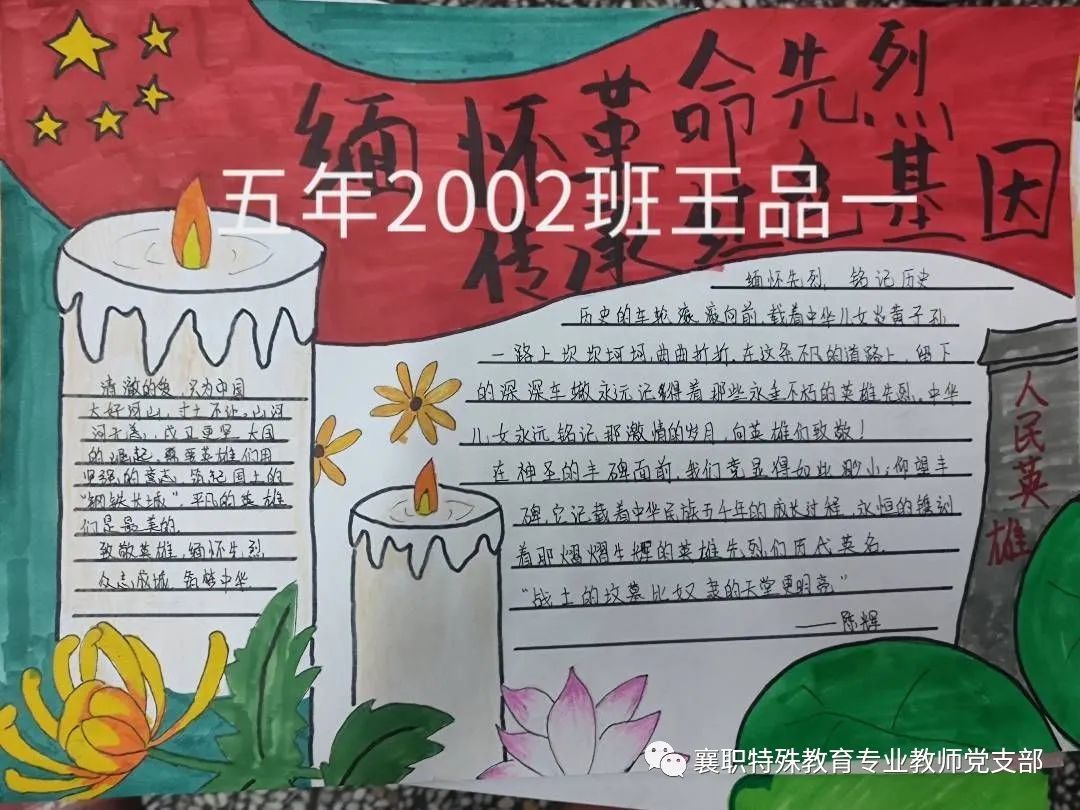 缅怀革命先烈
五年2002班王品一
传承红色基因
清澈的爱，只为中国
大好河山，寸土不让。山河
的崛起，需要英雄们用
坚强的意志，筑起国土的
“钢铁长城。”平凡的英雄
们是最美的。
致敬英雄，缅怀先烈
众志成城，铸梦中华
缅怀先烈，铭记历史
历史的车轮滚滚向前，载着中华儿女炎黄子孙
一路上坎坎坷坷，曲曲折折。在这条不凡的道路上，留下
的深深车辙永远记得着那些永垂不朽的英雄先烈。中华
儿女永远铭记那激情的岁月，向英雄们致敬！
在神圣的丰碑面前，我们竟显得如此渺小；仰望丰
碑，它记载着中华民族五千年的成长过程，永恒的镌刻
着那熠熠生辉的英雄先烈们历代英名。
“战士的坟墓比奴隶的天堂更明亮”
——陈辉
人民英雄
襄职特殊教育专业教师党支部